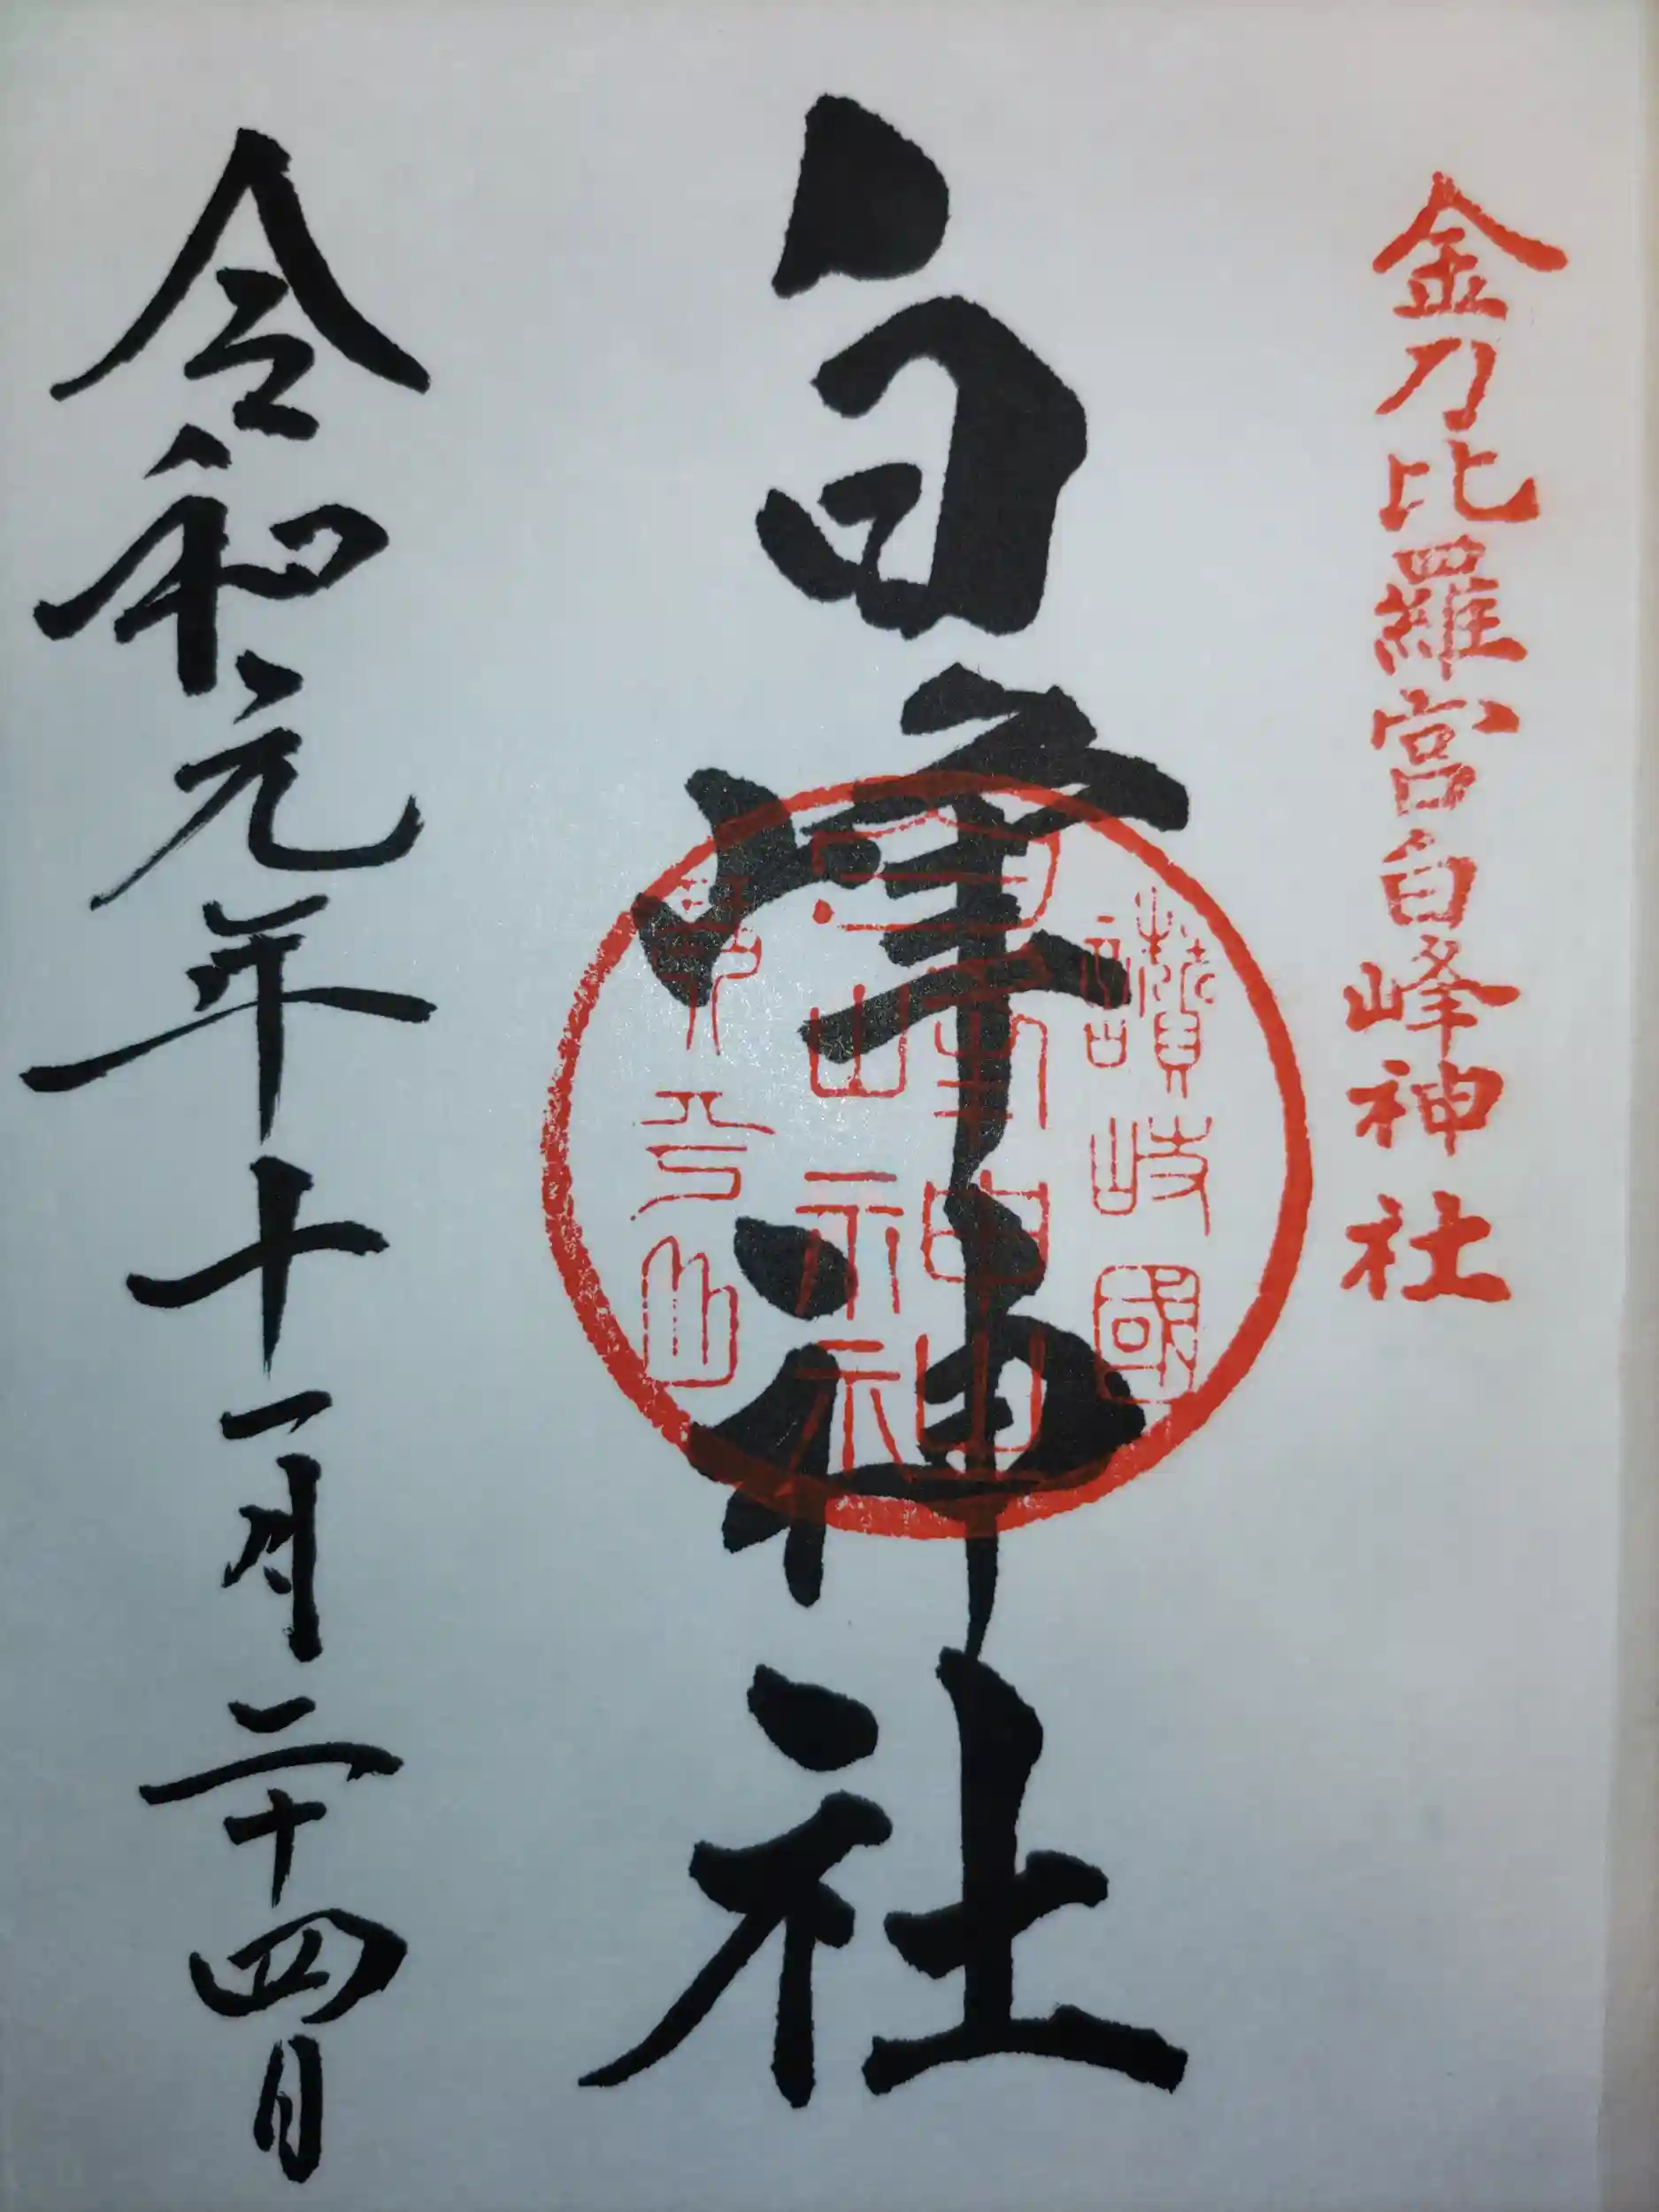 金刀比羅宮白峰神社
白峯神社
讃岐國
象頭山
令和元年十一月二十四日